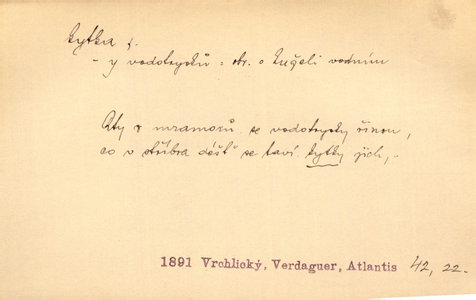 kytka f.
- y vodotrysků = o kuželi vodním
Kdy z mramorů se vodotrysky řinou,
co v stříbra déšť se taví kytky jich,-
1891 Vrchlický, Verdaguer, Atlantis 42, 22.